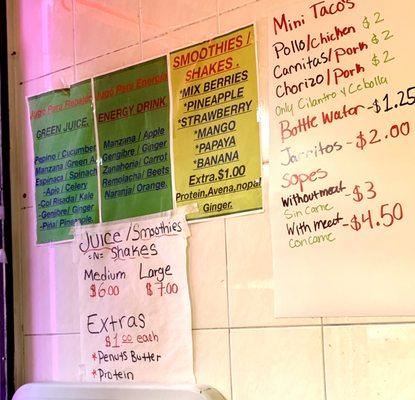 Jugo Para Rebajar
GREEN JUICE.
Pepino / Cucumber
Manzana/Green A
Espinaca/Spinach
-Apio / Celery
-Col Risada/ Kale
-Genjibre/ Ginger
-Piña/ Pineapple
Jugo Para Energia
ENERGY DRINK.
Manzana / Apple
Gengibre / Ginger
Zanahoria/ Carrot
Remolacha/ Beets
Naranja/ Orange.
SMOOTHIES /
SHAKES .
*MIX BERRIES
*PINEAPPLE
*STRAWBERRY
*MANGO
*PAPAYA
*BANANA
Extra.$1.00
Protein,Avena,nopal
Ginger.
Juice/Smoothies
=N= Shakes
Medium Large
$6.00 $7.00
Extras
$1.00 each
*Penuts Butter
*Protein
Mini Tacos
Pollo/Chicken $2
Carnitas/Pork $2
Chorizo/Pork $2
Only Cilantro y Cebolla
Bottle Water-$1.25
Jarritos-$2.00
Sopes
Without meat-$3
Sin carne
With meat-$4.50
con carne